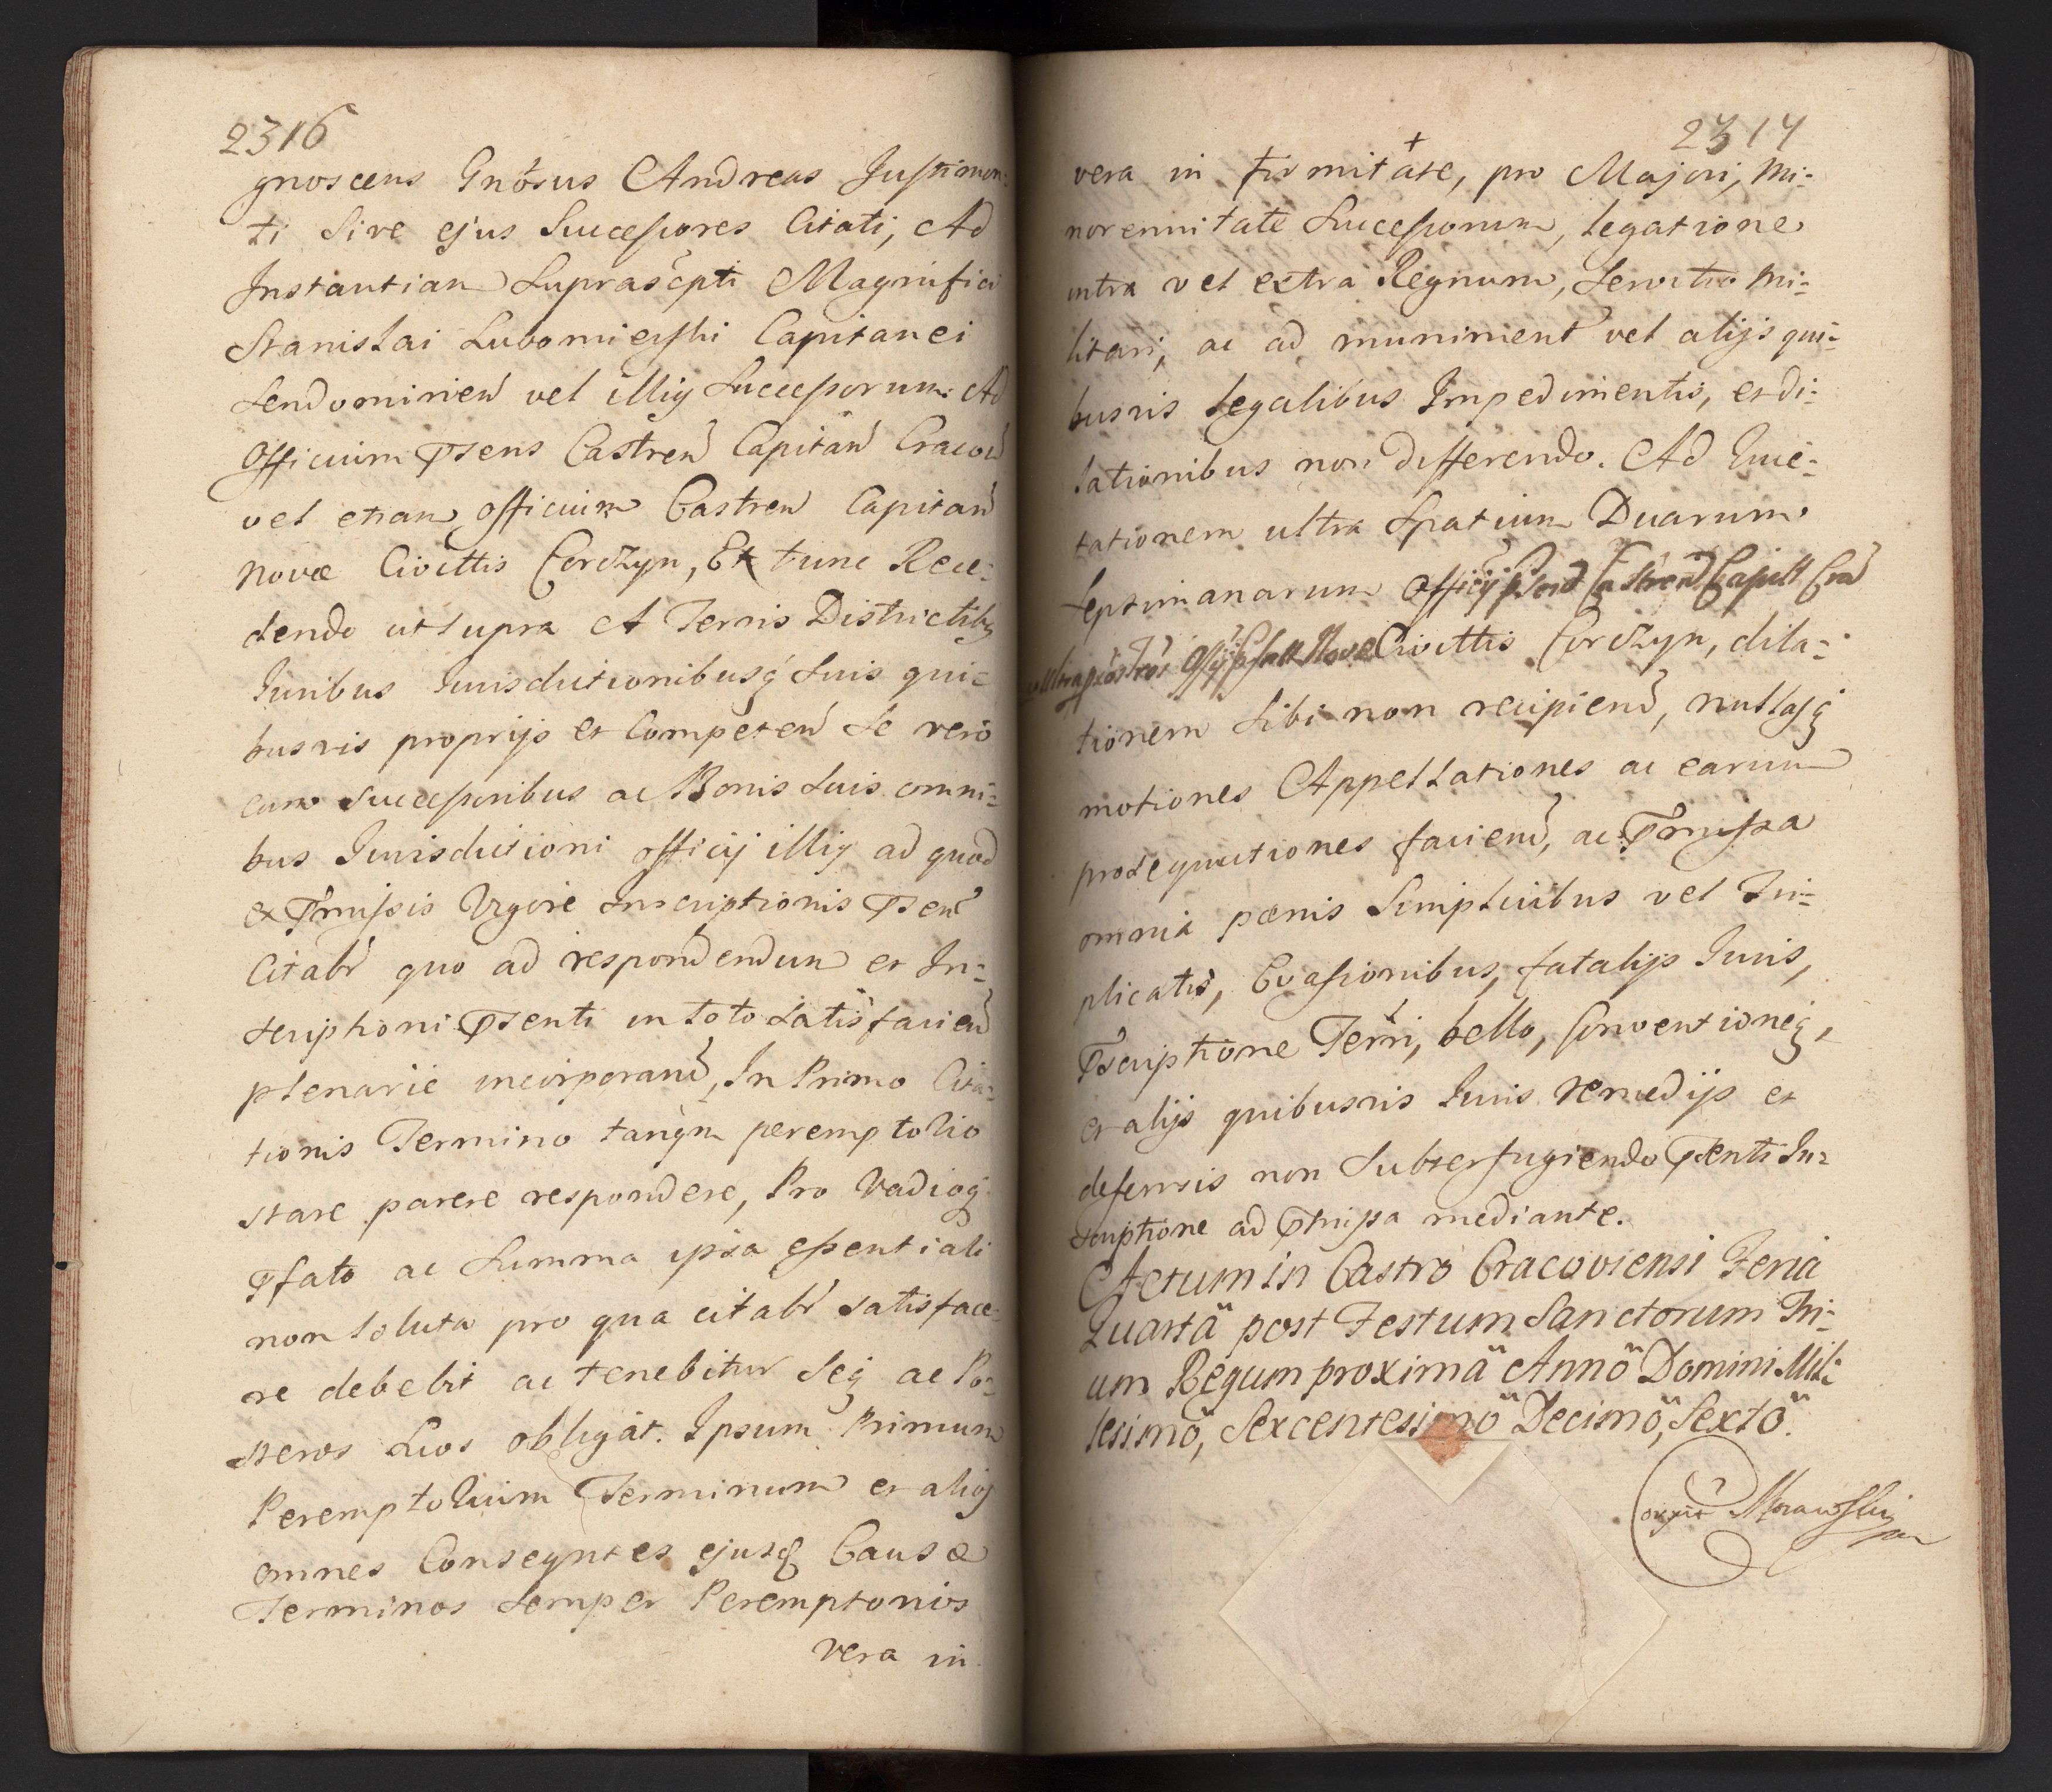 2316
gnoscens Gnösus Andreas Justimon:
ti Sive ejus Successores Citati, Ad
Instantiam Suprascpti Magnifici
Stanislai Lubomierski Capitanei
Sendomirien vel illig Successorum Ad
Officium Psens Castren Capitan Cracow
vel etiam Officium Castren Capitan
Novæ Civittis Corczyn, Et tunc Rece:
dendo ut Supra A Terris Districtibg
Juribus Jurisdictionibusq Suis qui=
busvis proprijs et Competen Se vero
cum Successoribus ac Bonis Suis omni=
bus Jurisdictioni Officij illig ad quod
ex Pmissis Vigore Inscriptionis Psen
Citabr quo ad respondendum et In=
scriptioni Psenti in toto Satisfacien
plenarie incorporand, In Primo Cita=
tionis Termino tanqm peremptorio
stare parere respondere, Pro Vadioq
Pfato ac Summa ipsa essentiali
non Soluta pro qua citabr satisface=
re debebit ac tenebitur Seq ac Po=
steros Suos obligat. Ipsum Primum
Peremptorium Terminum et alios
omnes Conseqntes ejusq Causæ
Terminos Semper Peremptorios
vera in
2317
vera in firmitate, pro Majori, Mi=
norennitate Successorum, Legatione
intra vel extra Regnum, Servitio Mi=
litari, ac ad muniment vel alijs qui=
busvis Legalibus Impedimentis, et di=
lationibus non differendo. Ad Quie=
tationem ultra Spatium Duarum
Septimanarum Officij Psend Castren Capitt Crac
Officij Novæ Civittis Corczyn, dila=
tionem Sibi non recipiend, nullasq
motiones Appellationes ac earum
prosequutiones faciend, ac Pmissa
omnia pænis Simplicibus vel Tri=
plicatis, Evasionibus, fatalijs Juris,
Pscriptione Terri, bello, Conventioneq,
et alijs quibusvis Juris remedijs et
defensis non Subterfugiendo Psenti In=
scriptione ad Pmissa mediante.
Actum in Castro Cracoviensi Feria
Quarta post Festum Sanctorum Tri=
um Regum proxima Anno Domini Mil=
lesimo, Sexcentesimo Decimo, Sexto.
Correxit Morawski